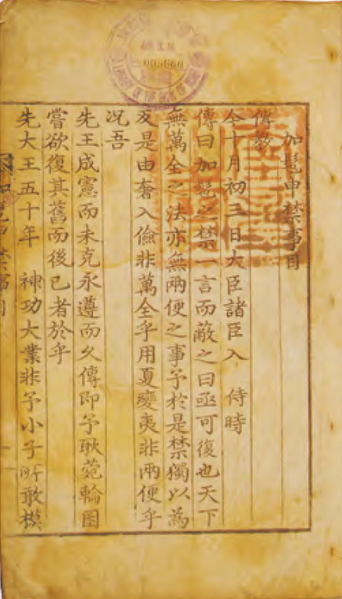 加髢申禁事目
傳教
今十月初三日大臣諸臣入 侍時
傳曰加髢之禁一言而蔽之曰亟可復也天下
無萬全之法亦無兩便之事予於是禁獨以爲
友是由奢入儉非萬全乎用夏變夷非兩便乎
况吾
先王成憲而未克永遵而久傳卽予耿菀輪囷
嘗欲復其舊而後已者於乎
先大王五十年 神功大業非予小子所敢模
005660